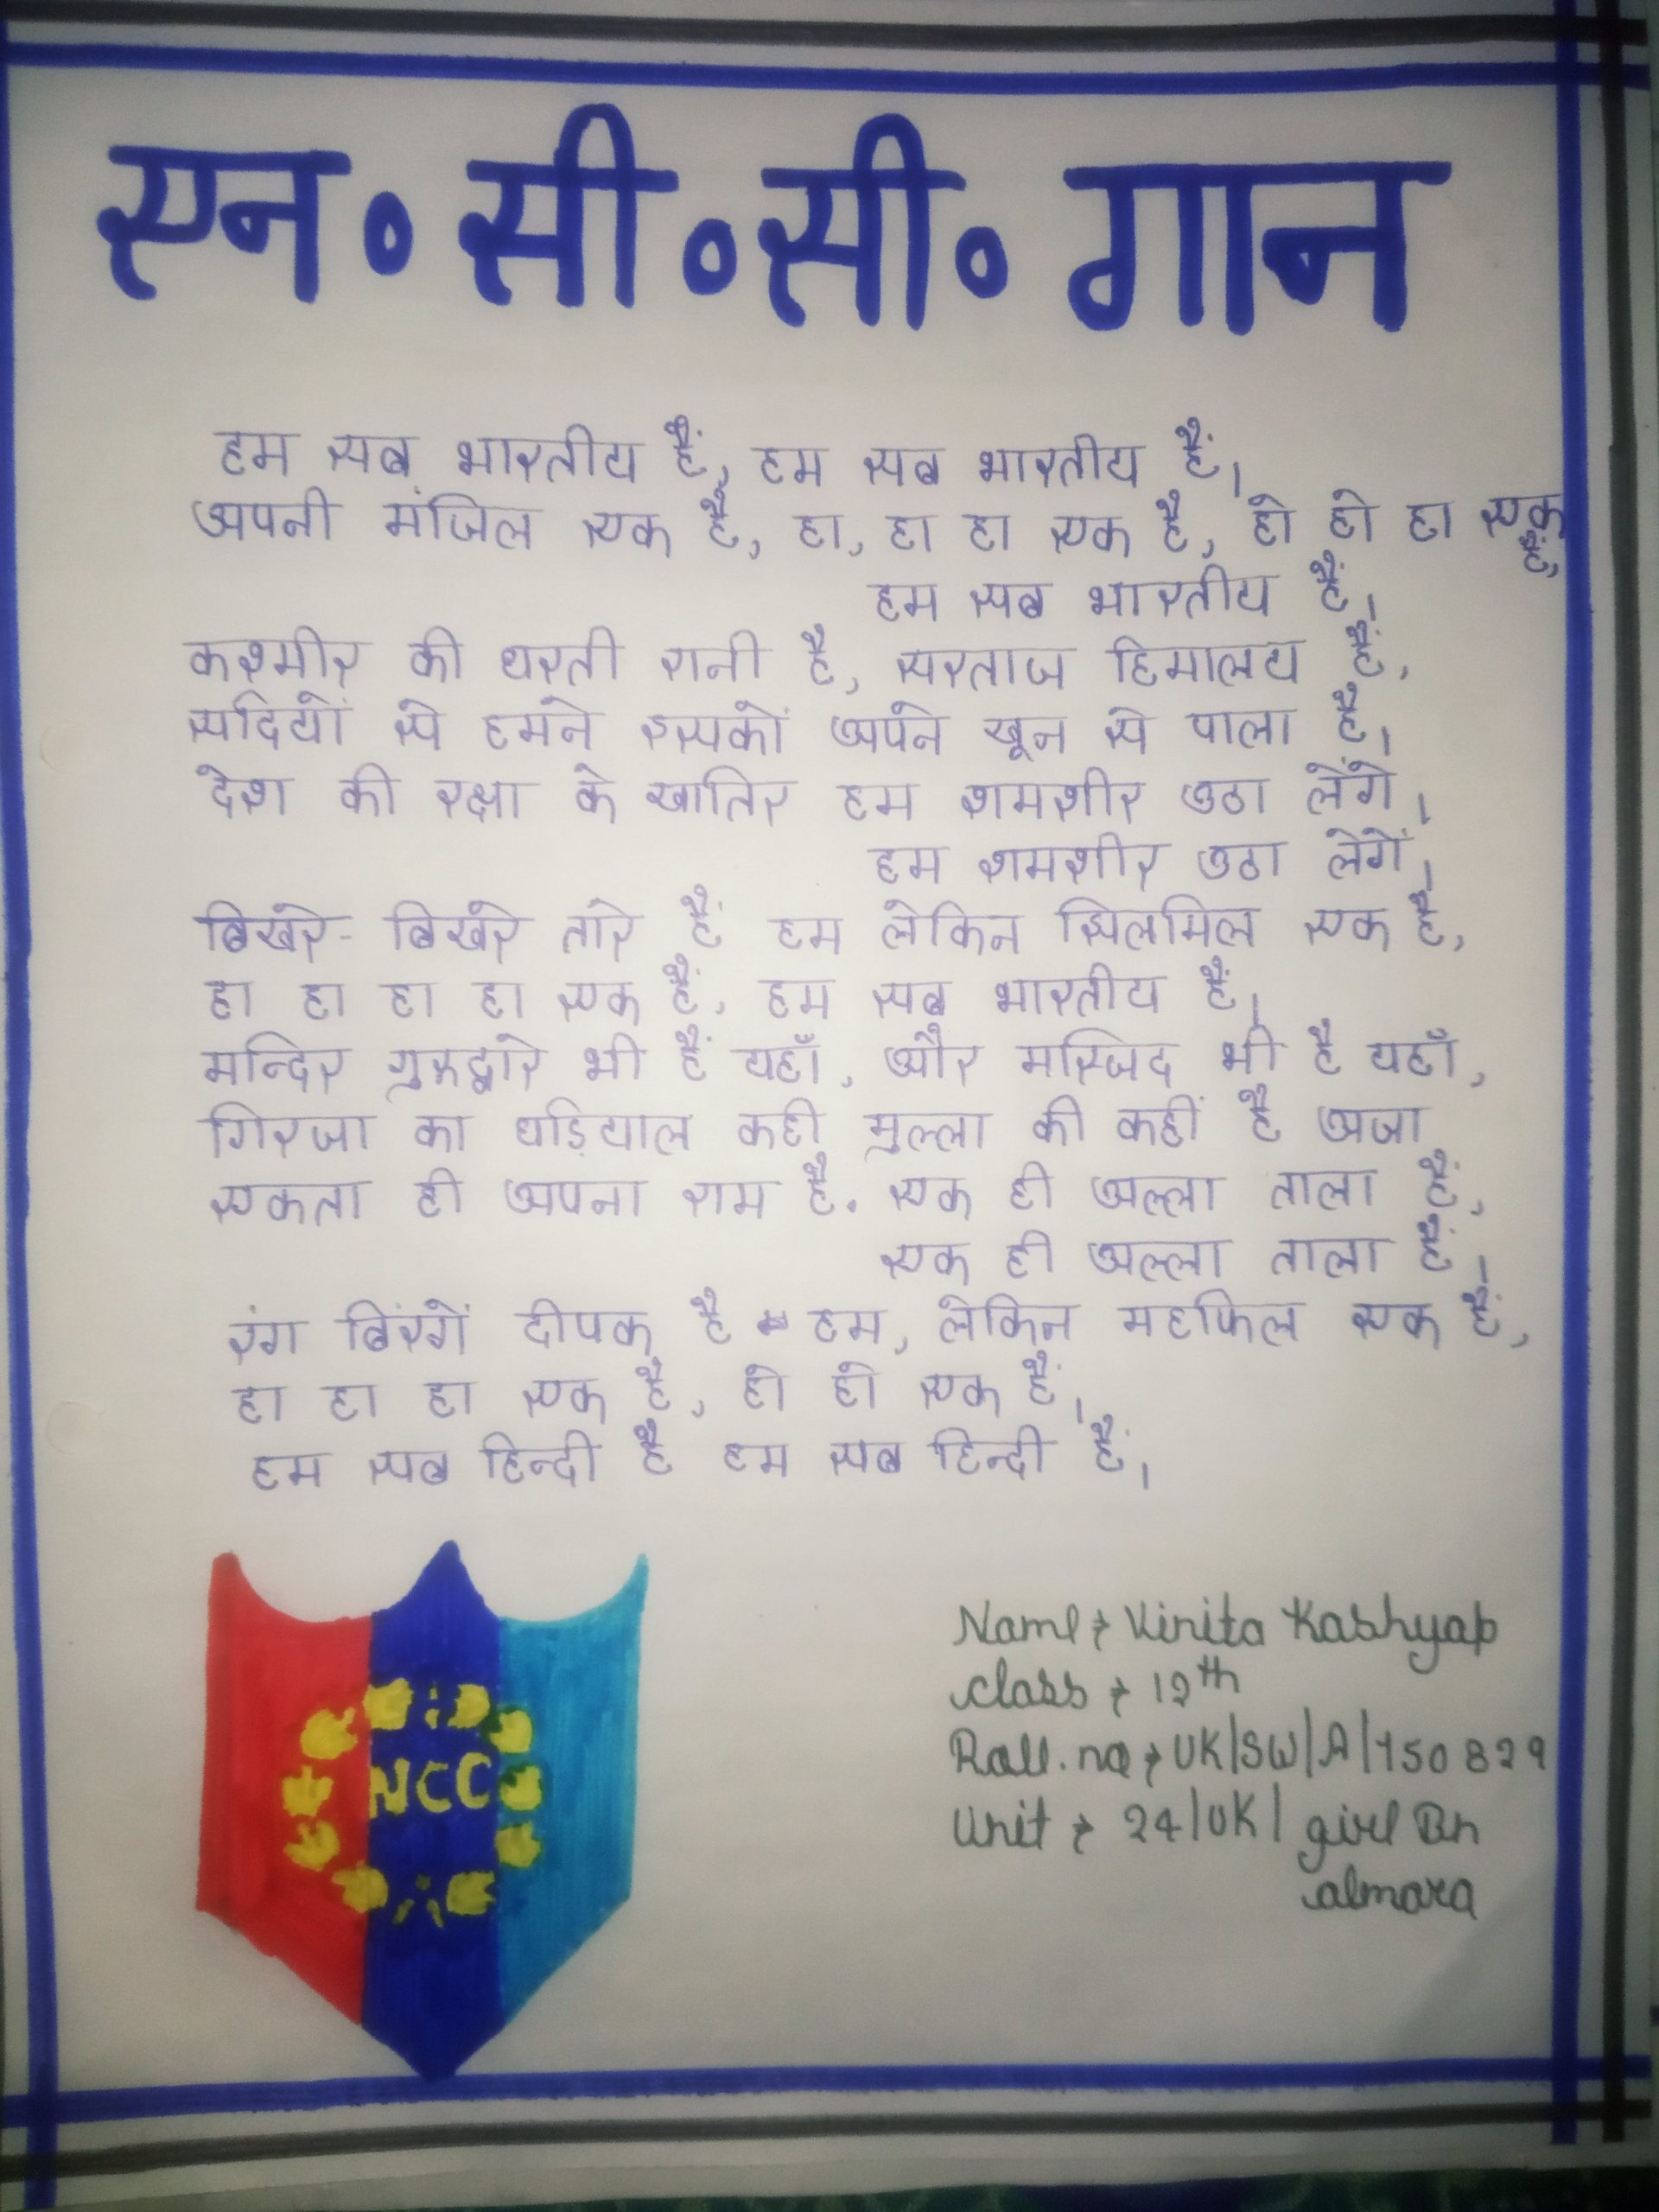 एन॰सी॰सी॰ गान
हम सब भारतीय हैं, हम सब भारतीय हैं।
अपनी मंजिल एक है, हा, हा हा एक है, हो हो हा एक
है,
हम सब भारतीय हैं।
कश्मीर की धरती रानी है, सरताज हिमालय हैं,
सदियों से हमने इसकों अपने खून से पाला है।
देश की रक्षा के खातिर हम शमशीर उठा लेंगे।
हम शमशीर उठा लेगें।
बिखरे- बिखरे तारे हैं हम लेकिन झिलमिल एक है,
हा हा हा हा एक हैं, हम सब भारतीय हैं।
मन्दिर गुरुद्वारे भी हैं यहाँ, और मस्जिद भी है यहाँ,
गिरजा का घड़ियाल कही मुल्ला की कहीं है अजा
एकता ही अपना राम है, एक ही अल्ला ताला हैं,
एक ही अल्ला ताला हैं।
रंग बिंरगें दीपक है हम, लेकिन महफिल एक हैं,
हा हा हा एक है, हो हो एक हैं।
हम सब हिन्दी है हम सब हिन्दी हैं।
NCC
Name → Vinita Kashyap
class → 12th
Roll. no → UK/SW/A/150829
Unit → 24/UK/ girl Bn
almora